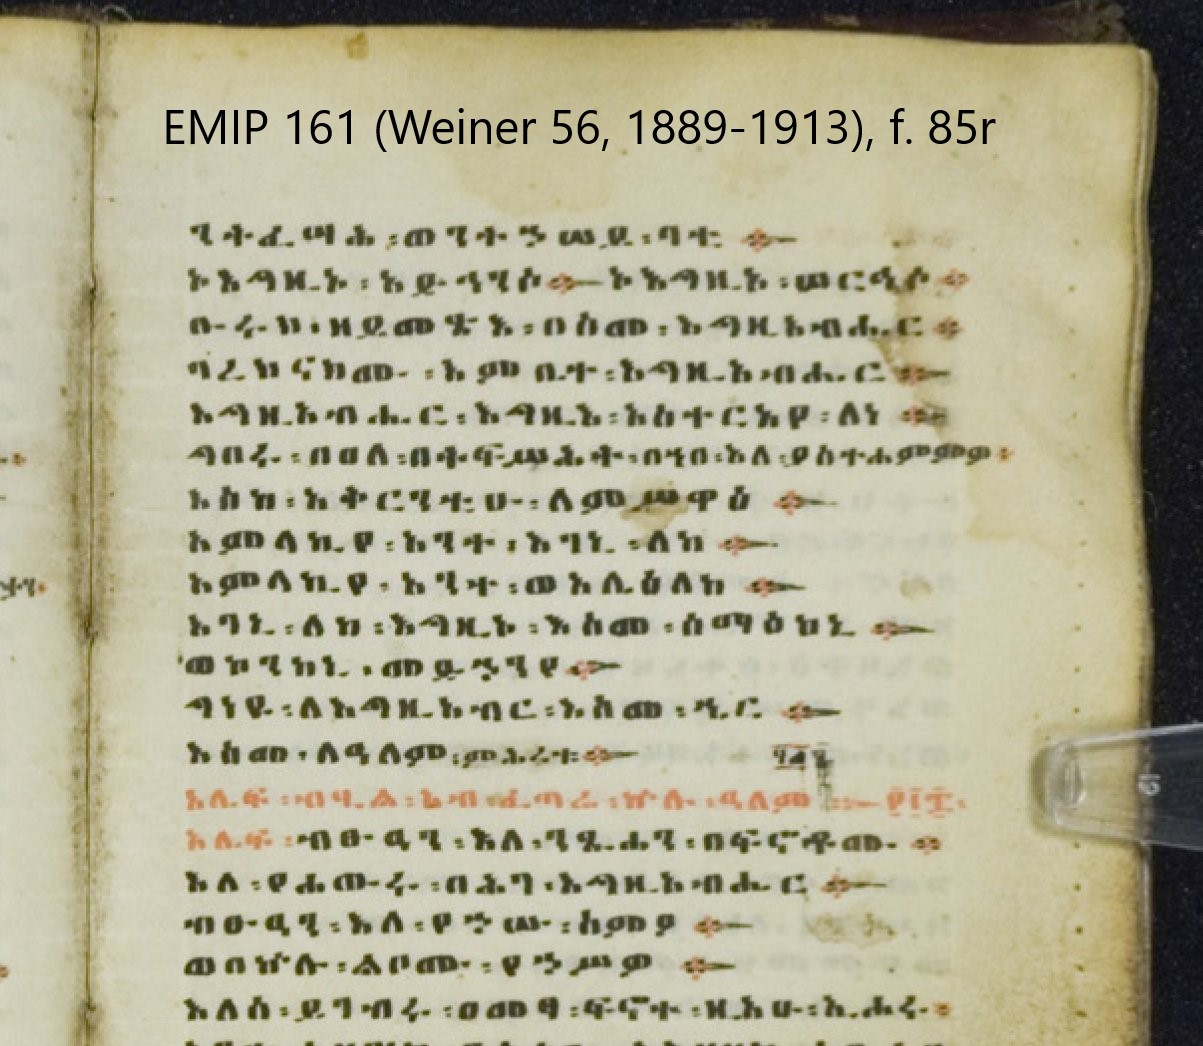 EMIP 161 (Weiner 56, 1889-1913), f. 85r
ንትፈሣሕ ፡ ወንትኀሠይ ፡ ባቲ ።
ኦእግዚኦ ፡ አድኅንሶ ። ኦእግዚኦ ፡ ሠርዓሶ ።
ቡሩክ ፡ ዘይመጽእ ፡ በስመ ፡ እግዚአብሔር ።
ባረክናክሙ ፡ እምቤተ ፡ እግዚአብሔር ።
እግዚአብሔር ፡ እግዚእ ፡ አስተርአየ ፡ ለነ ።
ግበሩ ፡ በዐለ ፡ በትፍሥሕት ፡ በኀበ ፡ እለ ፡ ያስተሐምምዎ ፡
እስከ ፡ አቅርንቲሁ ፡ ለምሥዋዕ ።
አምላኪየ ፡ አንተ ፡ እገኒ ፡ ለከ ።
አምላኪየ ፡ አንተ ፡ ወአሌዕለከ ።
እገኒ ፡ ለከ ፡ እግዚኦ ፡ እስመ ፡ ሰማዕከኒ ።
ወኮንከኒ ፡ መድኀንየ ።
ግነዩ ፡ ለእግዚአብር ፡ እስመ ፡ ኄር ።
እስመ ፡ ለዓለም ፡ ምሕረቱ ።
አሌፍ ፡ ብሂል ፡ አብ ፡ ፈጣሬ ፡ ኵሉ ፡ ዓለም ። ፻፲፰ ፡
አሌፍ ፡ ብፁዓን ፡ እለ ፡ ንጹሓን ፡ በፍኖቶሙ ።
እለ ፡ የሐውሩ ፡ በሕገ ፡ እግዚአብሔር ።
ብፁዓን ፡ እለ ፡ የኀሡ ፡ ስምዖ ።
ወበኵሉ ፡ ልቦሙ ፡ የኀሥዎ ።
እለሰ ፡ ይገብሩ ፡ ዐመፃ ፡ ፍኖተ ፡ ዚአሁ ፡ ኢሐሩ ።